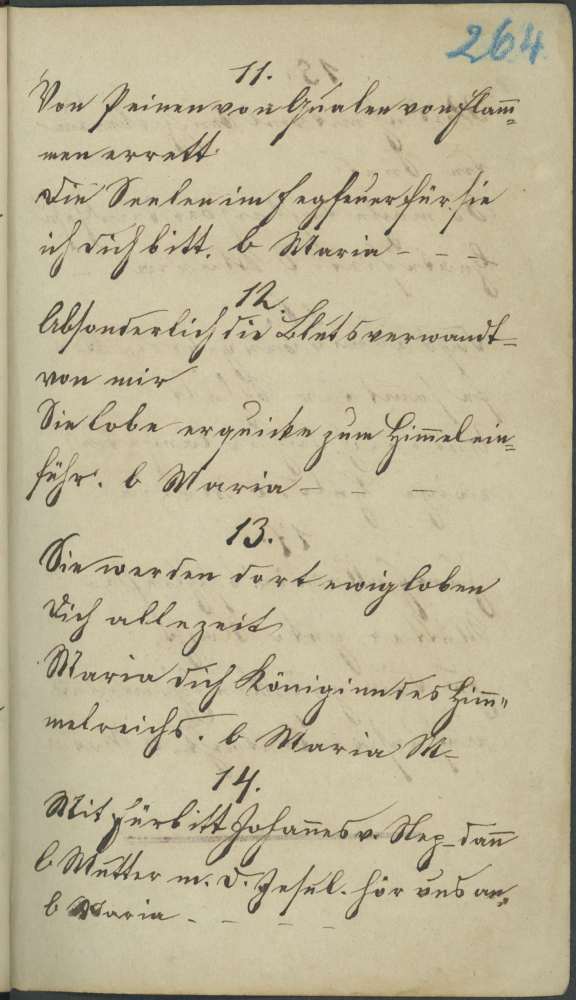 264
11.
Von Peinen von Qualen von Flam̄=
men errett
Die Seelen im Fegfeuer für sie
ich dich bitt. b Maria - - -
12.
Absonderlich die Blutsverwandt
von mir
Sie labe erquicke zum Him̄el ein=
führ. b Maria - - -
13.
Sie werden dort ewig loben
dich allezeit
Maria dich Königin des Him̄=
melreichs. b Maria M-
14.
Mit Fürbitt Johan̄es v. Nep. dan̄
b Mutter m. d. Jesul. hör uns an,
b Maria - - - -